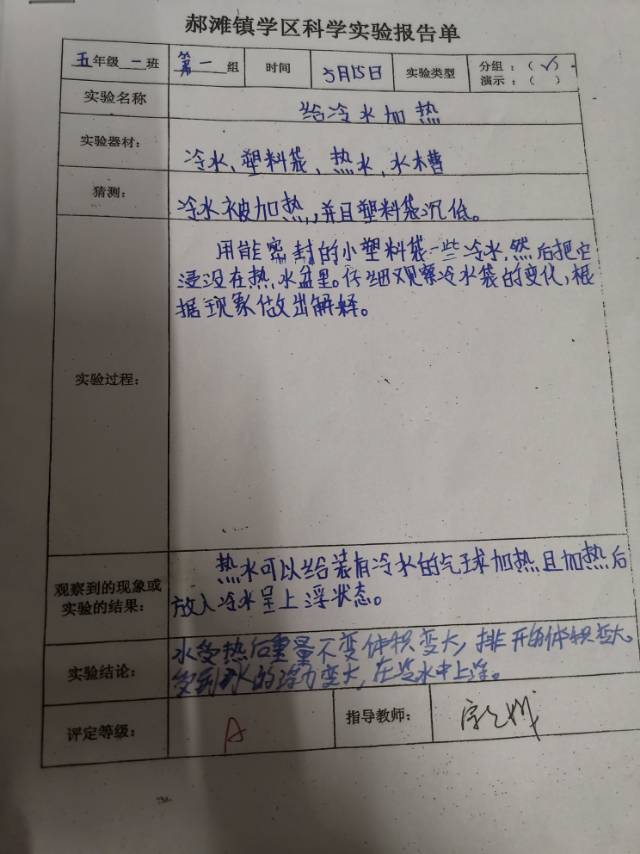 郝滩镇学区科学实验报告单
五年级 一班 第一组 时间 3月15日 实验类型 分组:(√)
演示:( )
实验名称 给冷水加热
实验器材: 冷水、塑料袋、热水、水槽
猜测: 冷水被加热,并且塑料袋沉低。
用能密封的小塑料袋一些冷水,然后把它
浸没在热水盆里。仔细观察冷水袋的变化,根
据现象做出解释。
实验过程:
热水可以给装有冷水的气球加热且加热后
观察到的现象或
实验的结果: 放入冷水呈上浮状态。
水受热后重量不变体积变大,排开的体积变大
实验结论: 受到水的浮力变大,在冷水中上浮。
评定等级: A 指导教师: